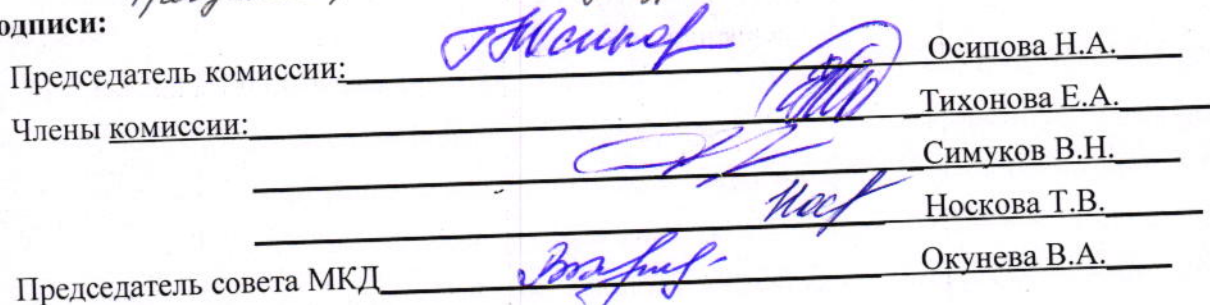 одписи:
Председатель комиссии: Осипова Н.А.
Члены комиссии: Тихонова Е.А.
Симуков В.Н.
Носкова Т.В.
Председатель совета МКД Окунева В.А.